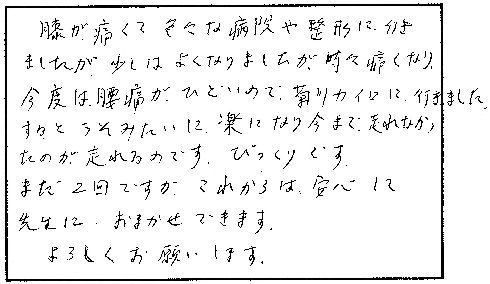 膝が痛くて色々な病院や整形に行き
ましたが少しはよくなりましたが時々痛くなり、
今度は腰痛がひどいので、菊川カイロに行きました。
するとうそみたいに、楽になり今まで走れなかっ
たのが走れるのです。びっくりです。
まだ2回ですが、これからは、安心して
先生に、おまかせできます。
よろしくお願いします。